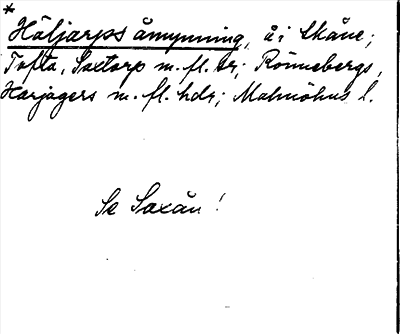 *
Häljarps åmynning, å i Skåne;
Tofta, Saxtorp m. fl. sr; Rönnebergs,
Harjagers m. fl. hdr; Malmöhus l.
Se Saxån!